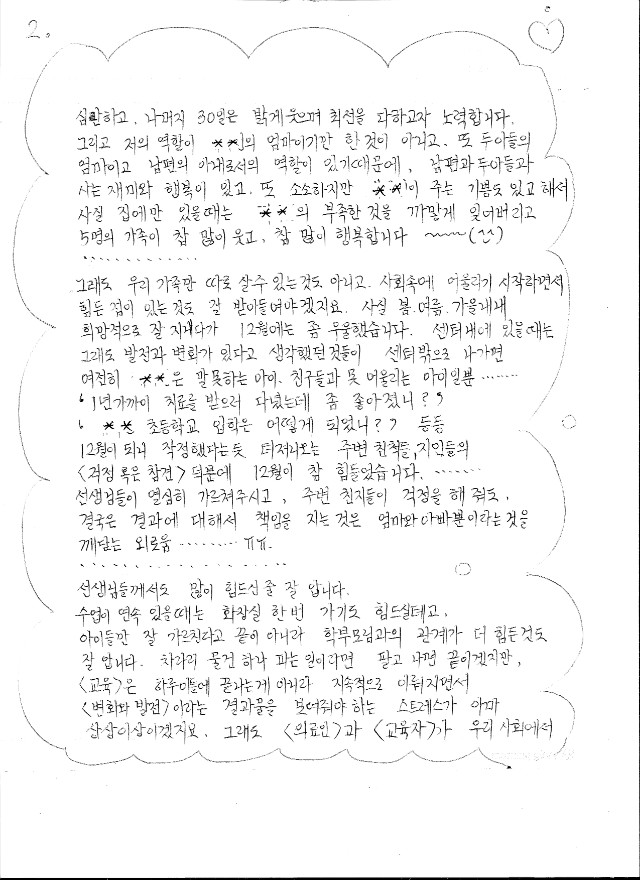 2.
심란하고, 나머지 30일은 밝게 웃으며 최선을 다하고자 노력합니다.
그리고 저의 역할이 **의 엄마이기만 한것이 아니고, 또 두아들의
엄마이고 남편의 아내로서의 역할이 있기때문에, 남편과 두아들과
사는 재미와 행복이 있고, 또 소소하지만 **이 주는 기쁨도 있고 해서
사실 집에만 있을때는 **의 부족한것을 까맣게 잊어버리고
5명의 가족이 참 많이 웃고, 참 많이 행복합니다 ~~~(^^)
.............
그래도 우리 가족만 따로 살수 있는것도 아니고, 사회속에 어울리기 시작하면서
힘든 점이 있는것도 잘 받아들여야겠지요. 사실 봄.여름.가을내내
희망적으로 잘 지내다가 12월에는 좀 우울했습니다. 센터내에 있을때는
그래도 발전과 변화가 있다고 생각했던것들이 센터밖으로 나가면
여전히 **은 말못하는 아이, 친구들과 못 어울리는 아이일뿐 .......
'1년가까이 치료를 받으러 다녔는데 좀 좋아졌니?'
'** 초등학교 입학은 어떻게 되었니?' 등등
12월이 되니 작정했다는듯 터져나오는 주변 친척들, 지인들의
<걱정 혹은 참견> 덕분에 12월이 참 힘들었습니다. .......
선생님들이 열심히 가르쳐주시고, 주변 친지들이 걱정을 해 줘도,
결국은 결과에 대해서 책임을 지는것은 엄마와 아빠뿐이라는것을
깨닫는 외로움 ......... ㅠㅠ.
....................
선생님들께서도 많이 힘드신줄 잘 압니다.
수업이 연속 있을때는 화장실 한번 가기도 힘드실테고,
아이들만 잘 가르친다고 끝이 아니라 학부모님과의 관계가 더 힘든것도
잘 압니다. 차라리 물건 하나 파는 일이라면 팔고 나면 끝이겠지만,
<교육>은 하루이틀에 끝나는게 아니라 지속적으로 이뤄지면서
<변화와 발전>이라는 결과물을 보여줘야 하는 스트레스가 아마
상상이상이겠지요. 그래도 <의료인>과 <교육자>가 우리 사회에서